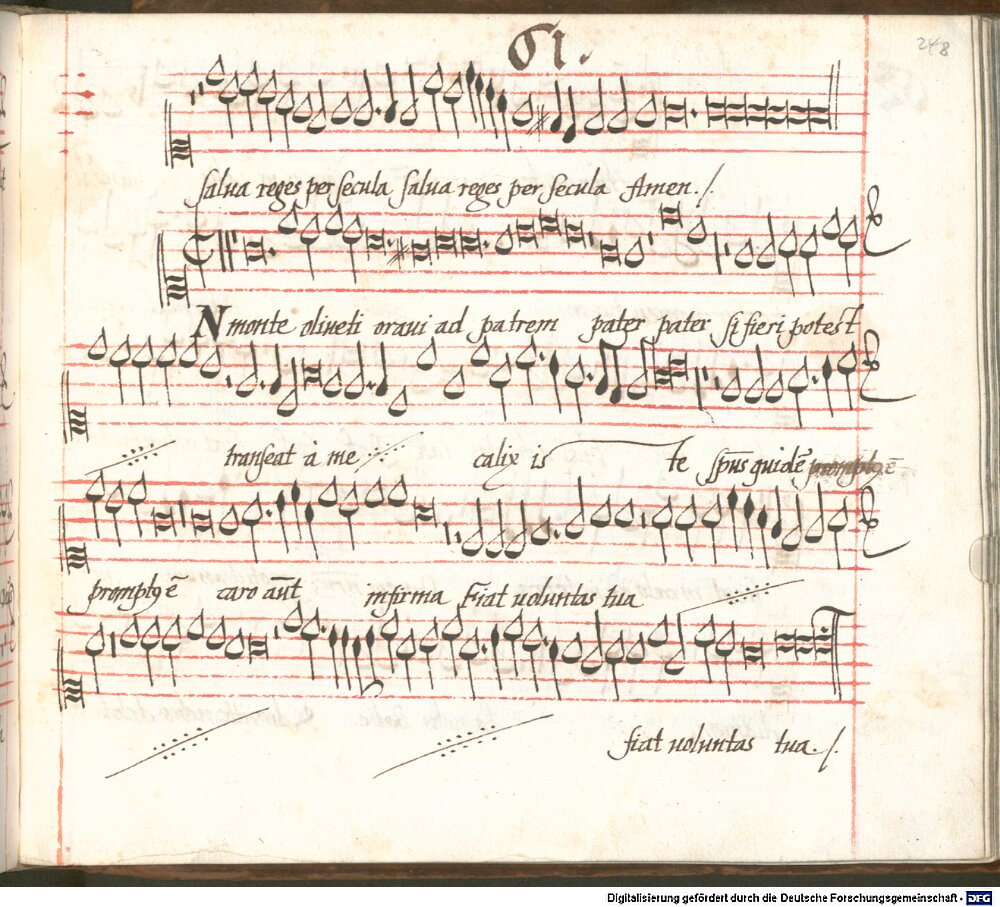 61.
248
salua reges per secula salua reges per secula Amen ./.
N monte oliueti oraui ad patrem pater pater si fieri potest
transeat à me calix is te spūs quidē
promptꝰ ē caro aūt infirma Fiat voluntas tua
fiat voluntas tua ./.
Digitalisierung gefördert durch die Deutsche Forschungsgemeinschaft - DFG